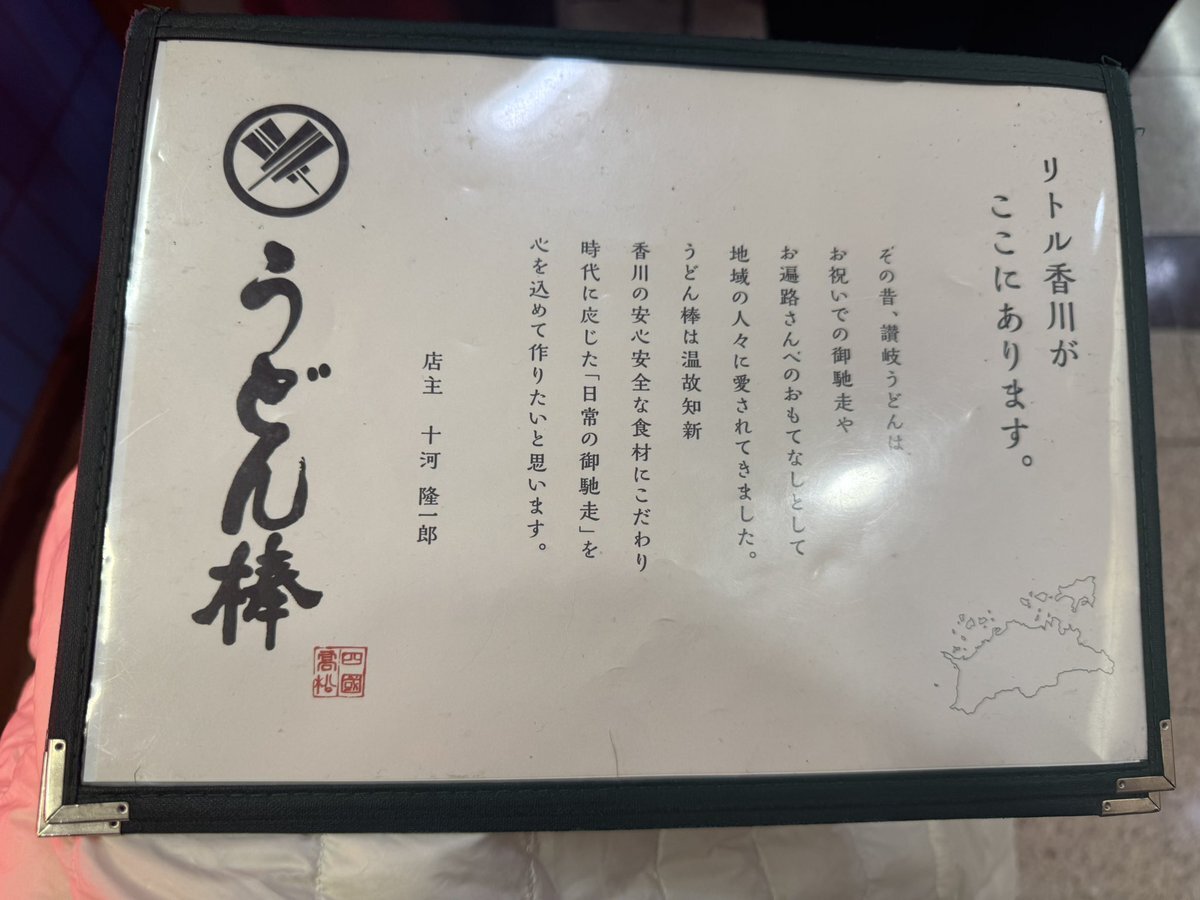 リトル香川が
ここにあります。
その昔、讃岐うどんは
お祝いでの御馳走や
お遍路さんへのおもてなしとして
地域の人々に愛されてきました。
うどん棒は温故知新
香川の安心安全な食材にこだわり
時代に応じた「日常の御馳走」を
心を込めて作りたいと思います。
店主 十河 隆一郎
うどん棒
四國
髙松